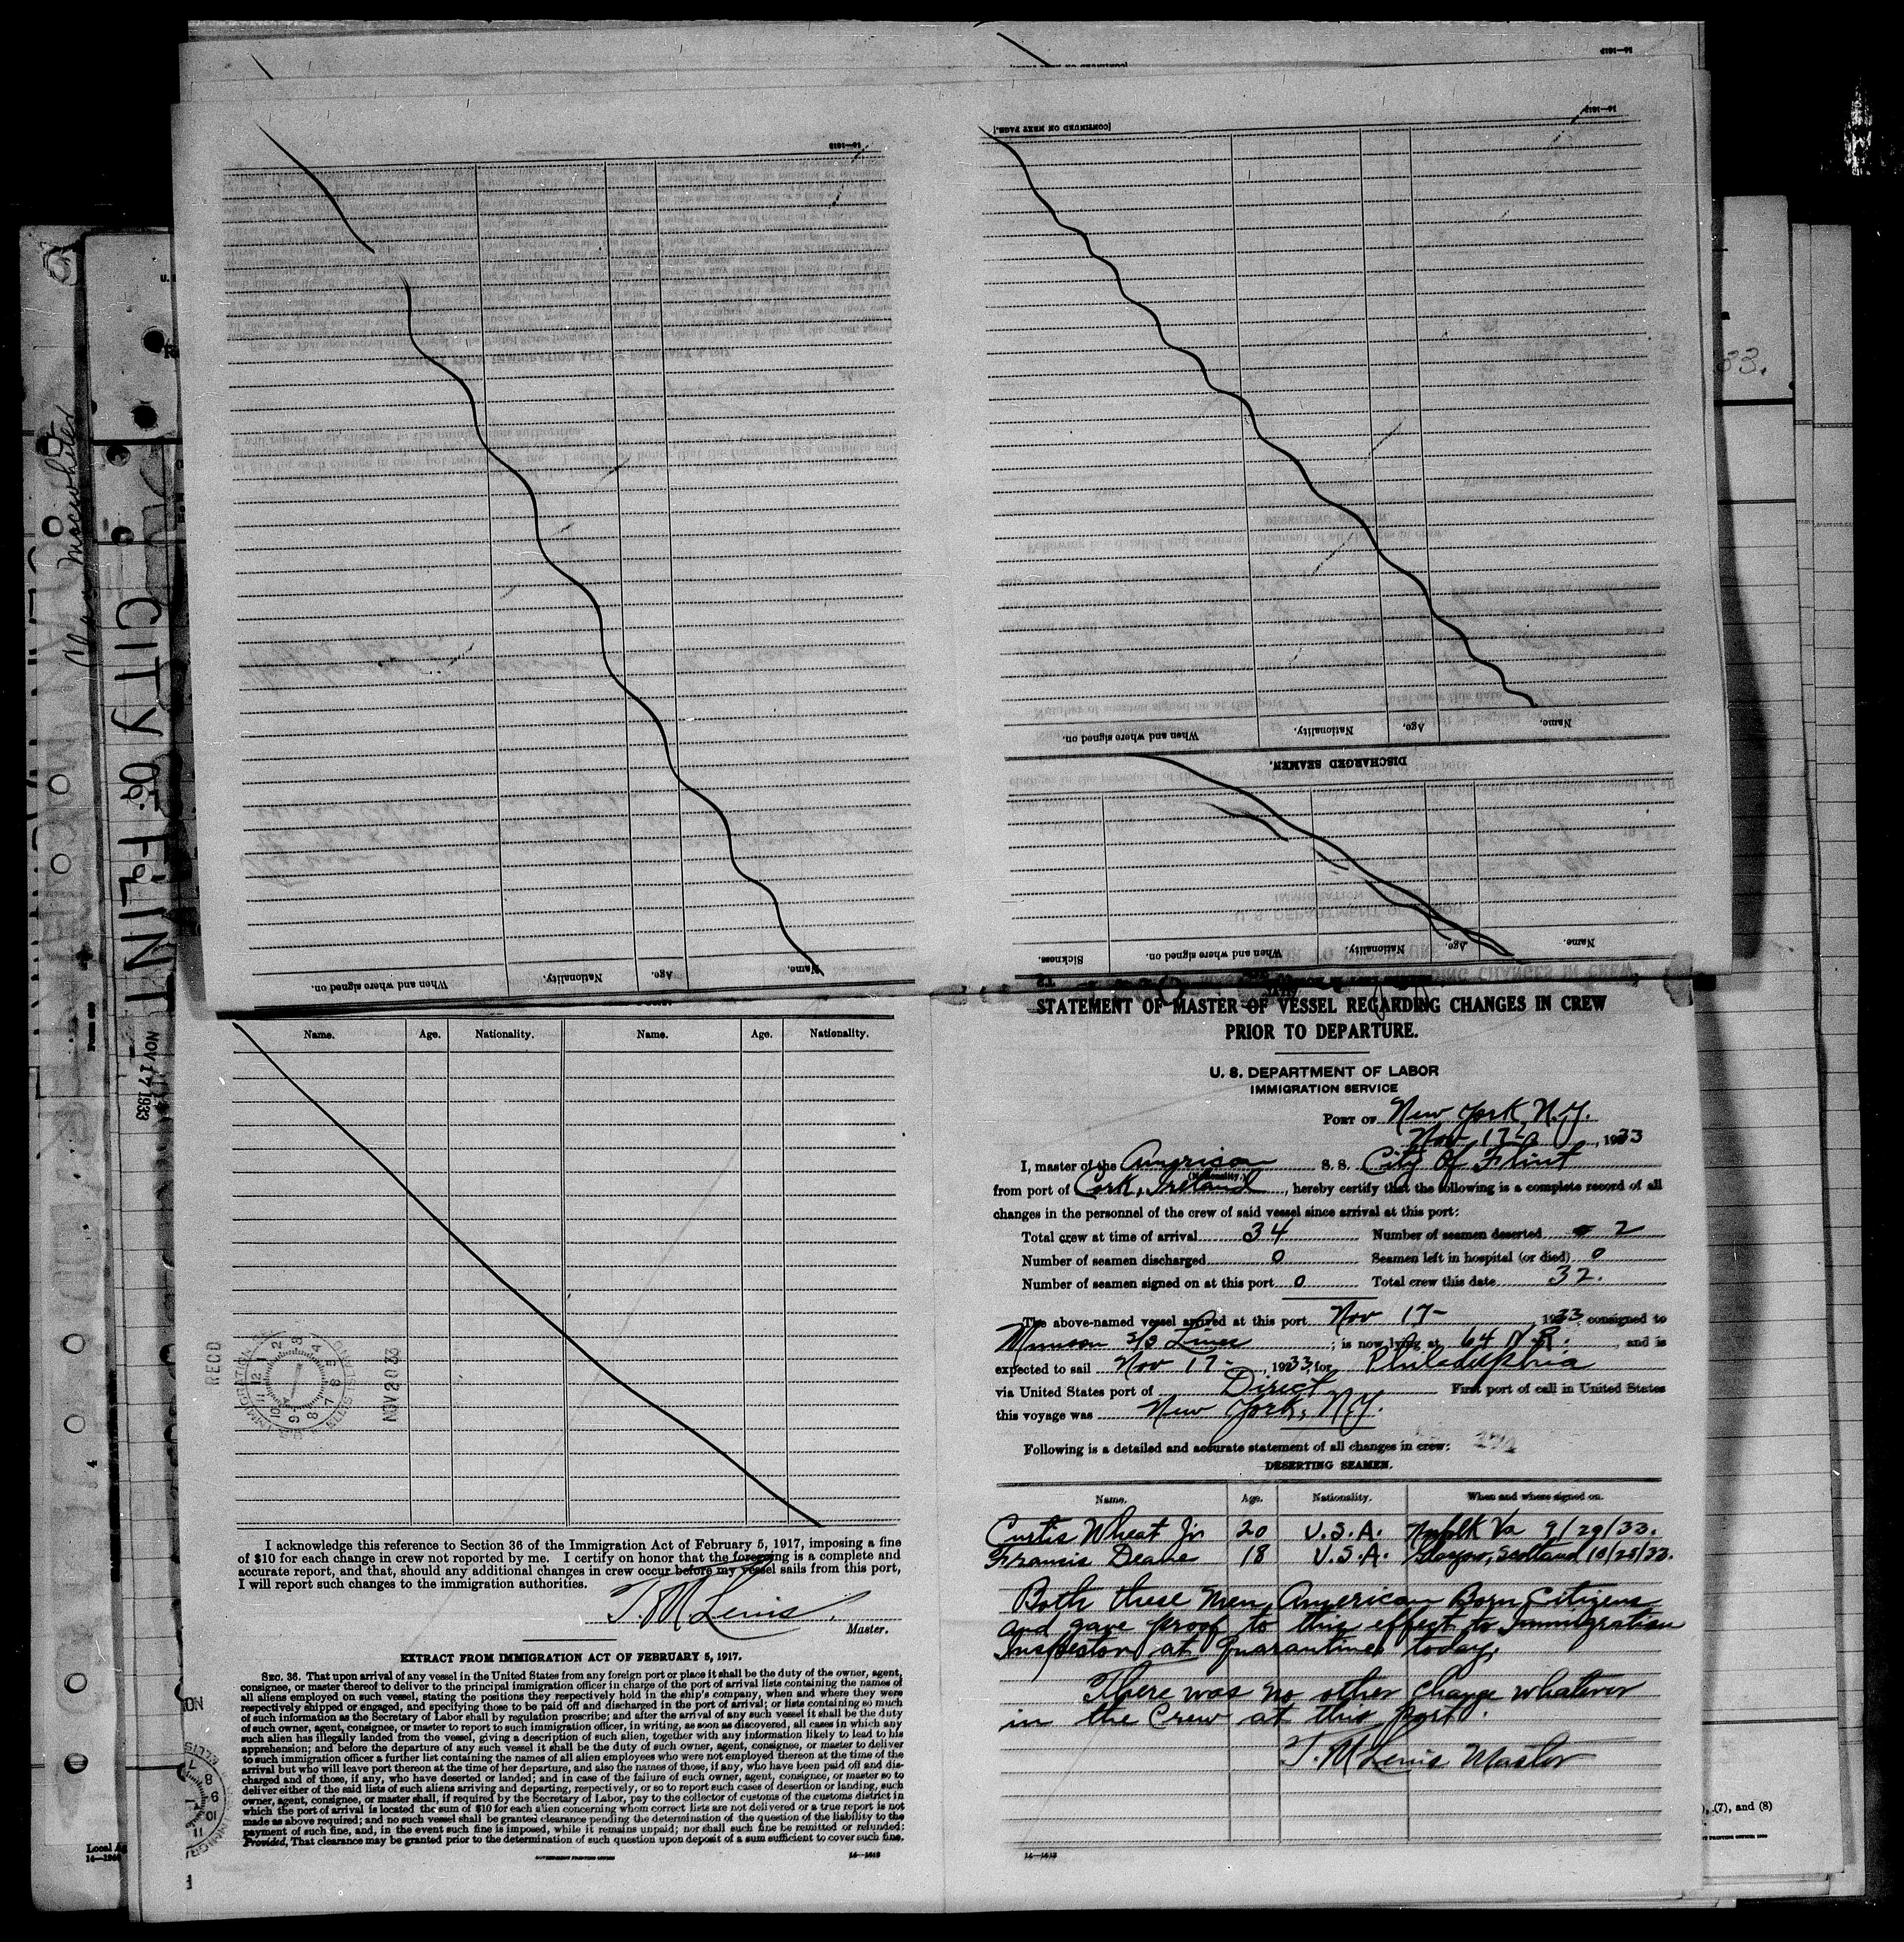 [CONTINUED ON NEXT PAGE.]
14—1613
When and where signed on.
Nationality.
Age.
Name.
DISCHARGED SEAMEN.
Sickness.
When and where signed on.
Nationality.
Age.
Name.
When and where signed on.
Nationality.
Age.
Name.
CITY OF FLINT
NOV 17 1933
33.
Name. Age. Nationality. Name. Age. Nationality.
RECD
NOV 20 33
I acknowledge this reference to Section 36 of the Immigration Act of February 5, 1917, imposing a fine
of $10 for each change in crew not reported by me. I certify on honor that the foregoing is a complete and
accurate report, and that, should any additional changes in crew occur before my vessel sails from this port,
I will report such changes to the immigration authorities.
T. M Lewis.
Master.
EXTRACT FROM IMMIGRATION ACT OF FEBRUARY 5, 1917.
SEC. 36. That upon arrival of any vessel in the United States from any foreign port or place it shall be the duty of the owner, agent,
consignee, or master thereof to deliver to the principal immigration officer in charge of the port of arrival lists containing the names of
all aliens employed on such vessel, stating the positions they respectively hold in the ship's company, when and where they were
respectively shipped or engaged, and specifying those to be paid off and discharged in the port of arrival; or lists containing so much
of such information as the Secretary of Labor shall by regulation prescribe; and after the arrival of any such vessel it shall be the duty
of such owner, agent, consignee, or master to report to such immigration officer, in writing, as soon as discovered, all cases in which any
such alien has illegally landed from the vessel, giving a description of such alien, together with any information likely to lead to his
apprehension; and before the departure of any such vessel it shall be the duty of such owner, agent, consignee, or master to deliver
to such immigration officer a further list containing the names of all alien employees who were not employed thereon at the time of the
arrival but who will leave port thereon at the time of her departure, and also the names of those, if any, who have been paid off and dis-
charged and of those, if any, who have deserted or landed; and in case of the failure of such owner, agent, consignee, or master so to
deliver either of the said lists of such aliens arriving and departing, respectively, or so to report such cases of desertion or landing, such
owner, agent, consignee, or master shall, if required by the Secretary of Labor, pay to the collector of customs of the customs district in
which the port of arrival is located the sum of $10 for each alien concerning whom correct lists are not delivered or a true report is not
made as above required; and no such vessel shall be granted clearance pending the determination of the question of the liability to the
payment of such fine, and, in the event such fine is imposed, while it remains unpaid; nor shall such fine be remitted or refunded:
Provided, That clearance may be granted prior to the determination of such question upon deposit of a sum sufficient to cover such fine.
GOVERNMENT PRINTING OFFICE 14—1613
STATEMENT OF MASTER OF VESSEL REGARDING CHANGES IN CREW
PRIOR TO DEPARTURE.
U. S. DEPARTMENT OF LABOR
IMMIGRATION SERVICE
PORT OF New York, N.Y.
Nov 17th, 1933
I, master of the American S. S. City Of Flint
(Nationality.)
from port of Cork, Ireland, hereby certify that the following is a complete record of all
changes in the personnel of the crew of said vessel since arrival at this port:
Total crew at time of arrival 34 Number of seamen deserted 2
Number of seamen discharged 0 Seamen left in hospital (or died) 0
Number of seamen signed on at this port 0 Total crew this date 32.
The above-named vessel arrived at this port Nov 17- 1933, consigned to
Munson S/S Lines; is now lying at 64 N. R., and is
expected to sail Nov 17-, 1933, for Philadelphia
via United States port of Direct First port of call in United States
this voyage was New York, N.Y.
Following is a detailed and accurate statement of all changes in crew:
DESERTING SEAMEN.
Name. Age. Nationality. When and where signed on.
Curtis Wheat Jr 20 U.S.A. Norfolk Va 9/29/33.
Francis Deane 18 U.S.A. Glasgow, Scotland 10/25/33.
Both these men, American Born Citizens
and gave proof to this effect to Immigration
Inspector at Quarantine today.
There was no other change whatever
in the Crew at this port.
T. M Lewis Master
14—1613
(7), and (8)